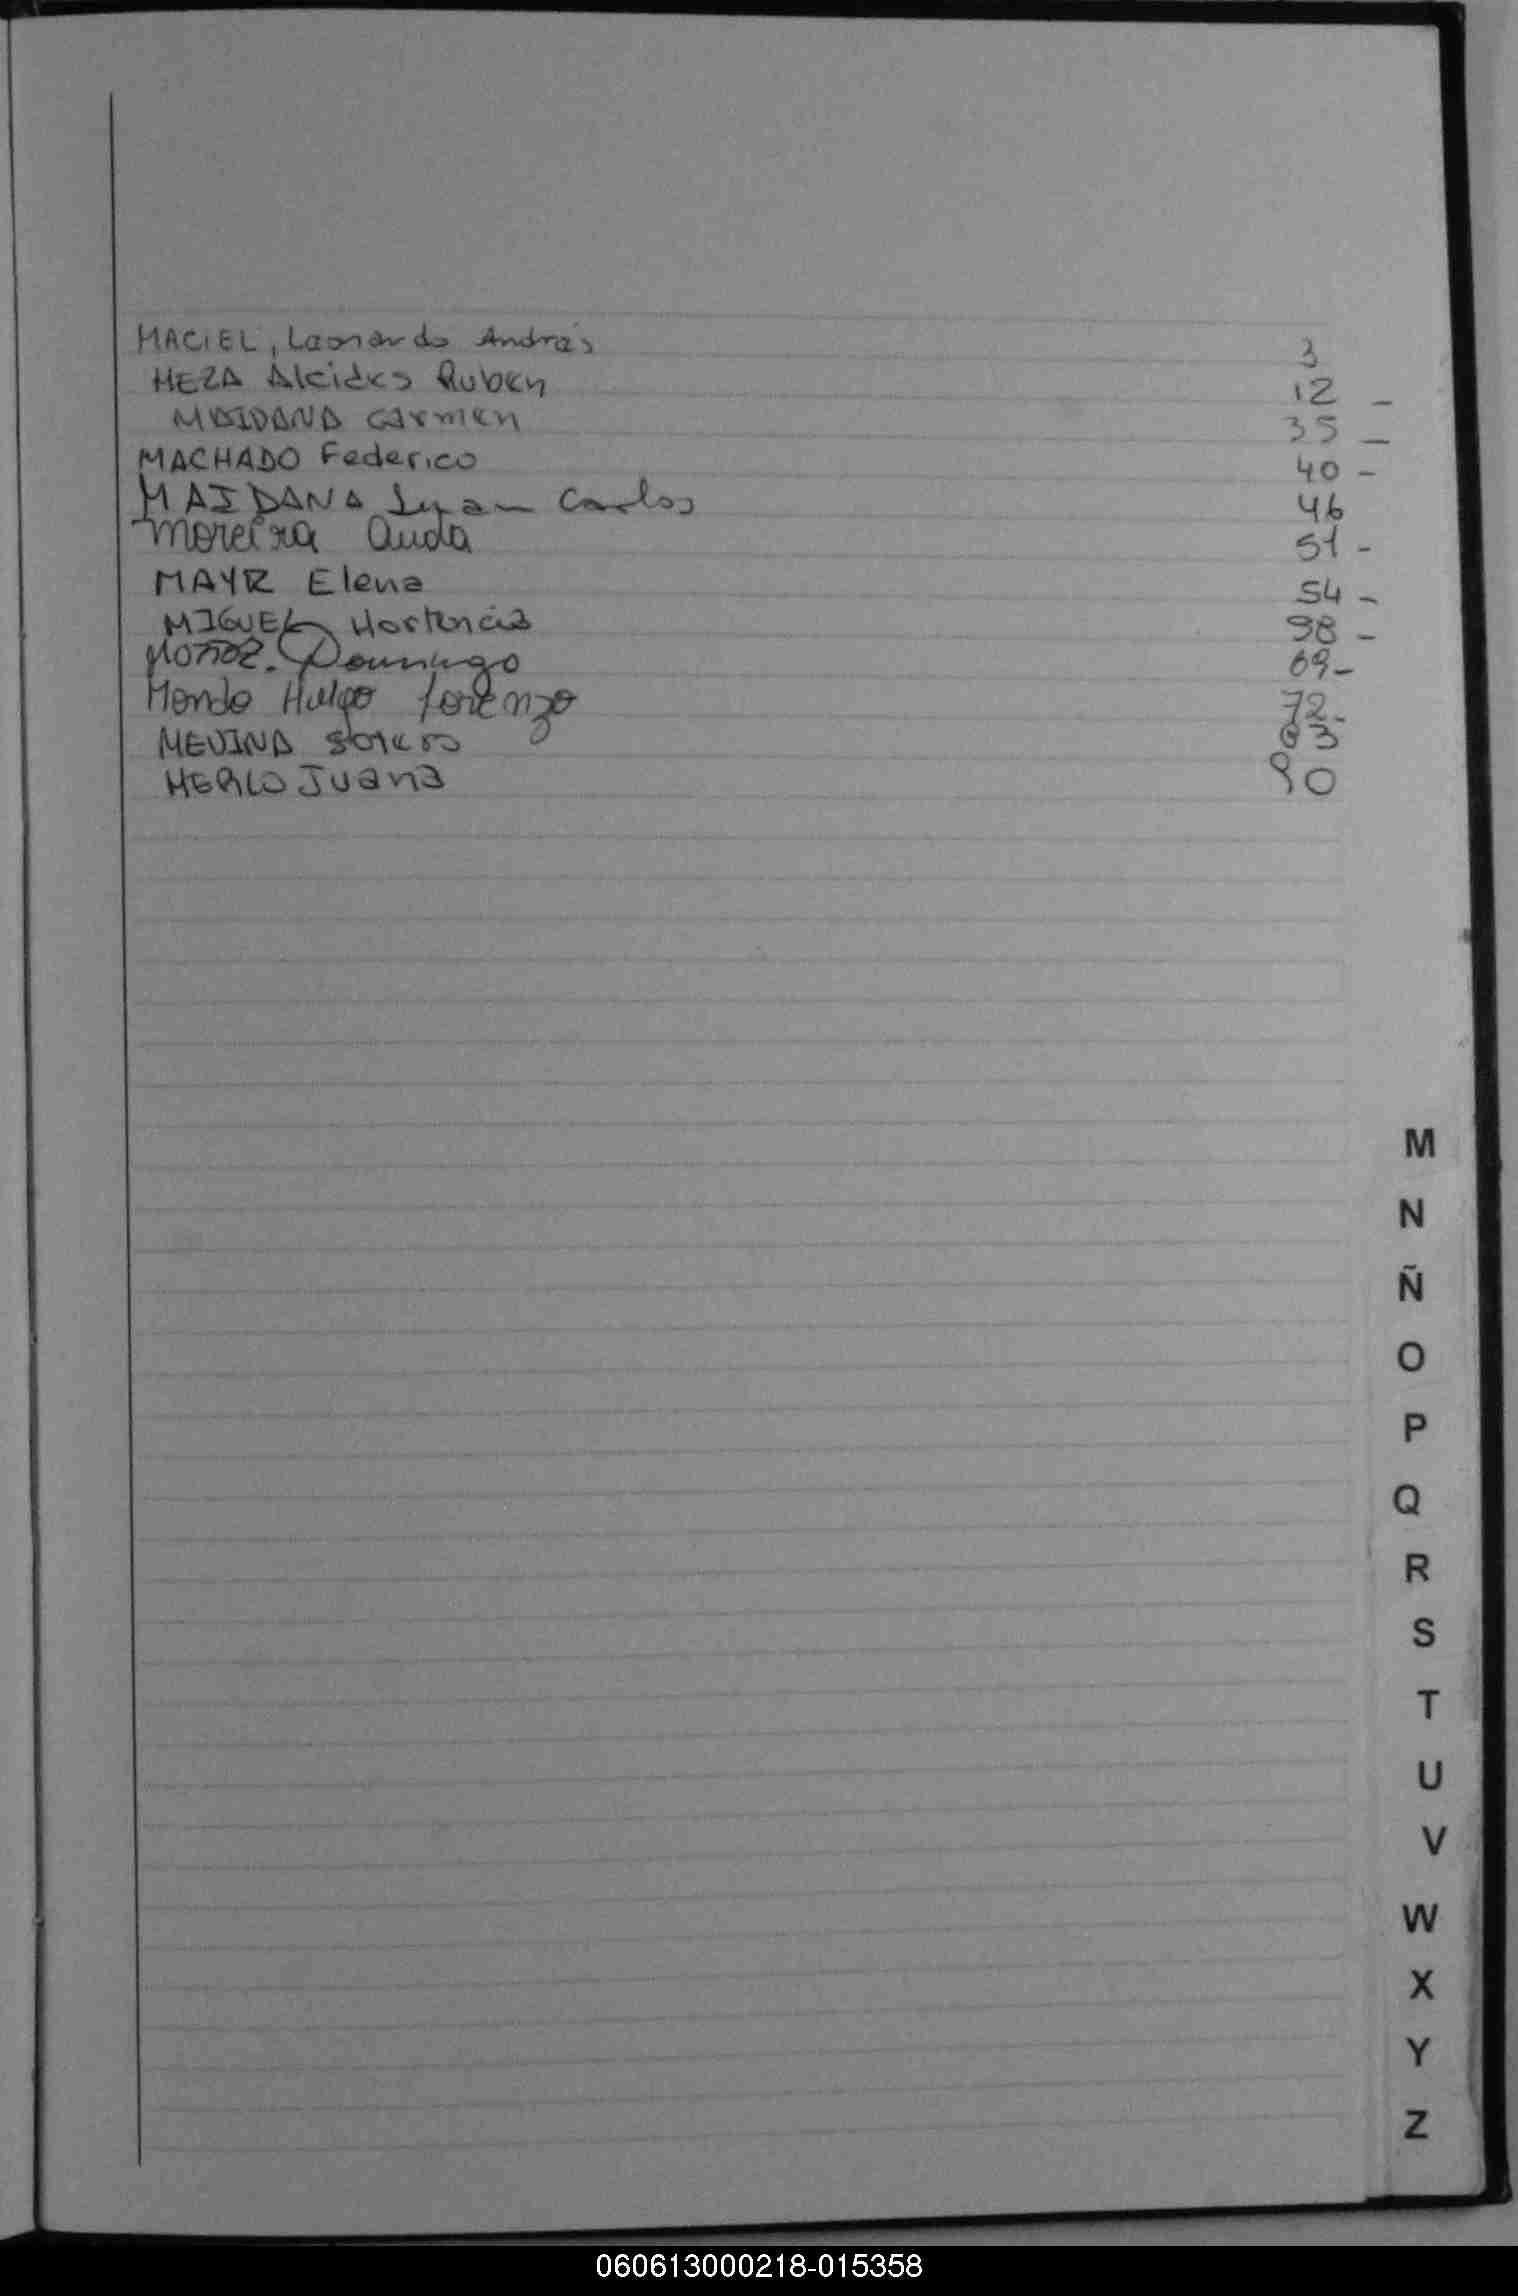 MACIEL, Leonardo Andrés 3
MEZA Alcides Ruben 12 -
MAIDANA Carmen 35 -
MACHADO Federico 40 -
MAIDANA Juan Carlos 46
Moreira Auda 51 -
MAYR Elena 54 -
MIGUEL Hortencia 98 -
Domingo 69-
Hugo Lorenzo 72-
83
MERLO Juana 90
M
N
Ñ
O
P
Q
R
S
T
U
V
W
X
Y
Z
060613000218-015358